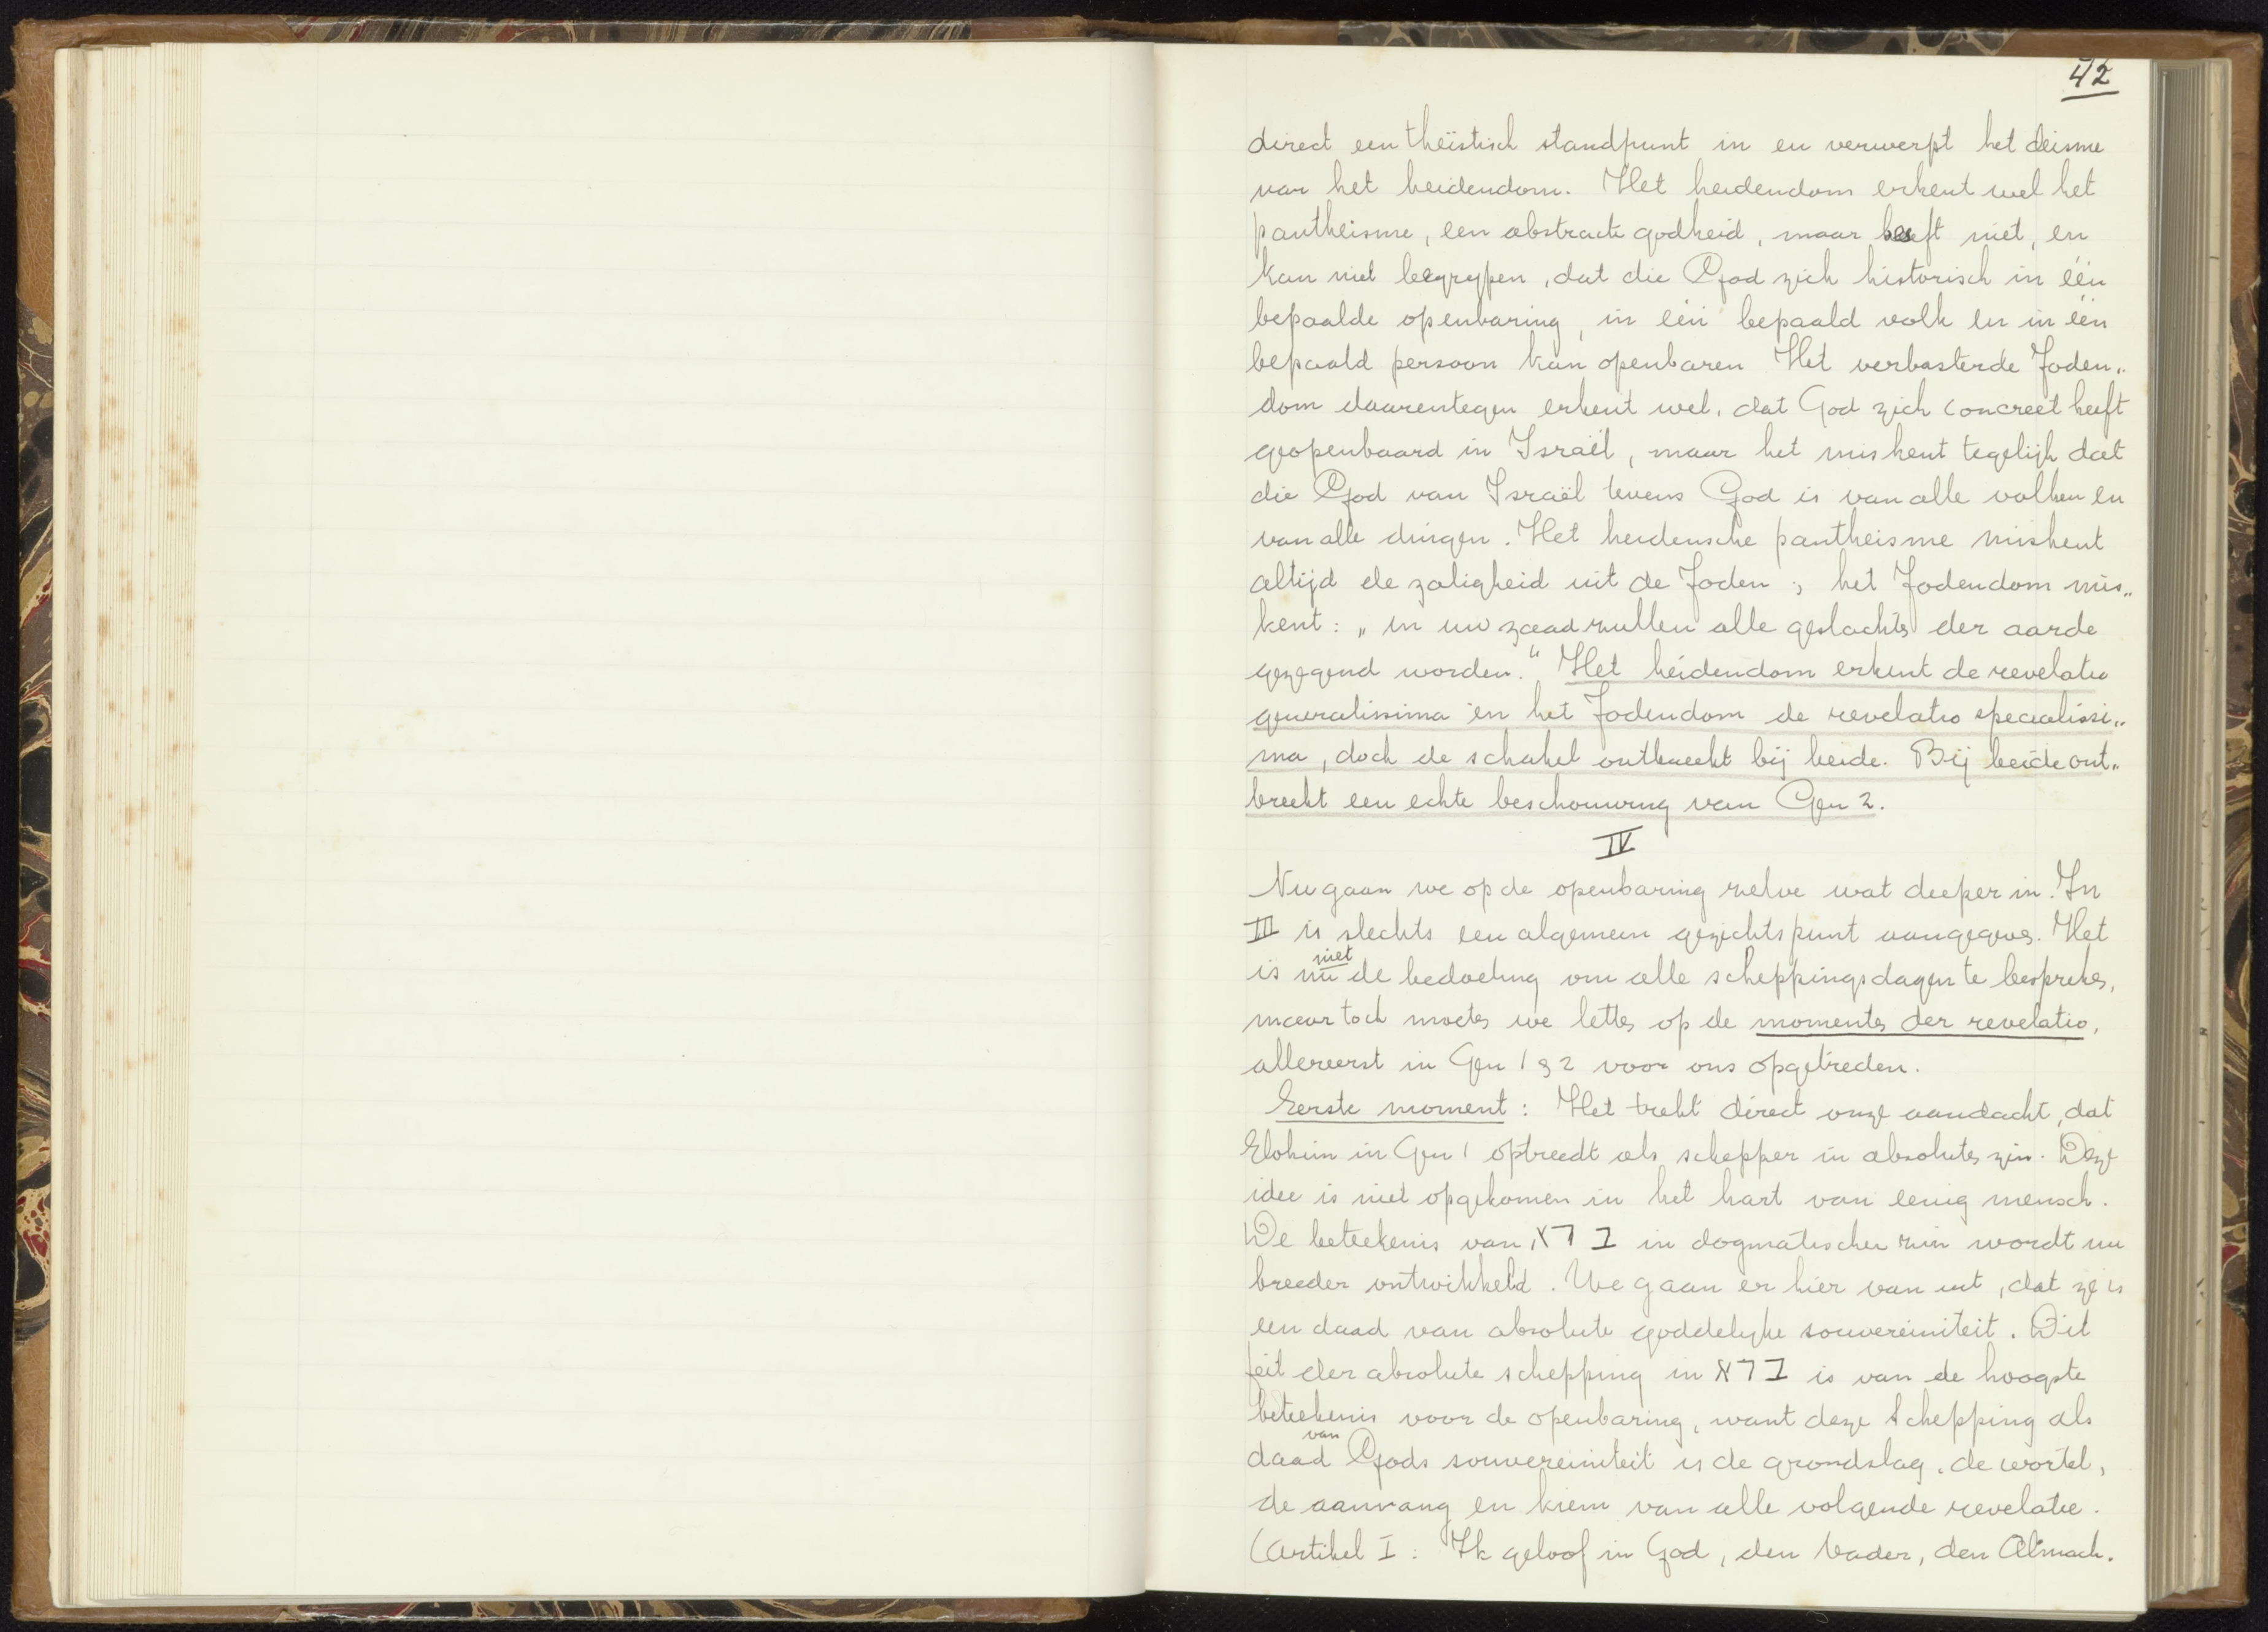 42
direct een theïstisch standpunt in en verwerpt het deisme
van het heidendom. Het heidendom erkent wel het
pantheisme, een abstracte godheid, maar heeft niet, en
kan niet begrypen, dat die God zich historisch in één
bepaalde openbaring, in één bepaald volk en in één
bepaald persoon kan openbaren Het verbasterde Joden„
dom daarentegen erkent wel, dat God zich concreet heeft
geopenbaard in Israël, maar het miskent tegelijk dat
die God van Israël tevens God is van alle volken en
van alle dingen. Het heidensche pantheisme miskent
altijd de zaligheid uit de Joden; het Jodendom mis„
kent: „in uw zaad zullen alle geslachten der aarde
gezegend worden." Het heidendom erkent de revelatio
generalissima en het Jodendom de revelatio specialissi„
ma, doch de schakel ontbreekt bij beide. Bij beide ont„
breekt een echte beschouwing van Gen 2.
IV
Nu gaan we op de openbaring zelve wat dieper in. In
III is slechts een algemeen gezichtspunt aangegeven. Het
is nu niet de bedoeling om alle scheppingsdagen te bespreken,
maar toch moeten we letten op de momenten der revelatio,
allereerst in Gen 1 & 2 voor ons opgetreden.
Eerste moment: Het trekt direct onze aandacht, dat
Elohim in Gen 1 optreedt als schepper in absoluten zin. Deze
idee is niet opgekomen in het hart van eenig mensch.
De beteekenis van ברא in dogmatischen zin wordt nu
breeder ontwikkeld. We gaan er hier van uit, dat ze is
een daad van absolute goddelyke souvereiniteit. Dit
feit der absolute schepping in ברא is van de hoogste
beteekenis voor de openbaring, want deze schepping als
daad van Gods souvereiniteit is de grondslag, de wortel,
de aanvang en kiem van alle volgende revelatie.
(Artikel I: Ik geloof in God, den Vader, den Almach.